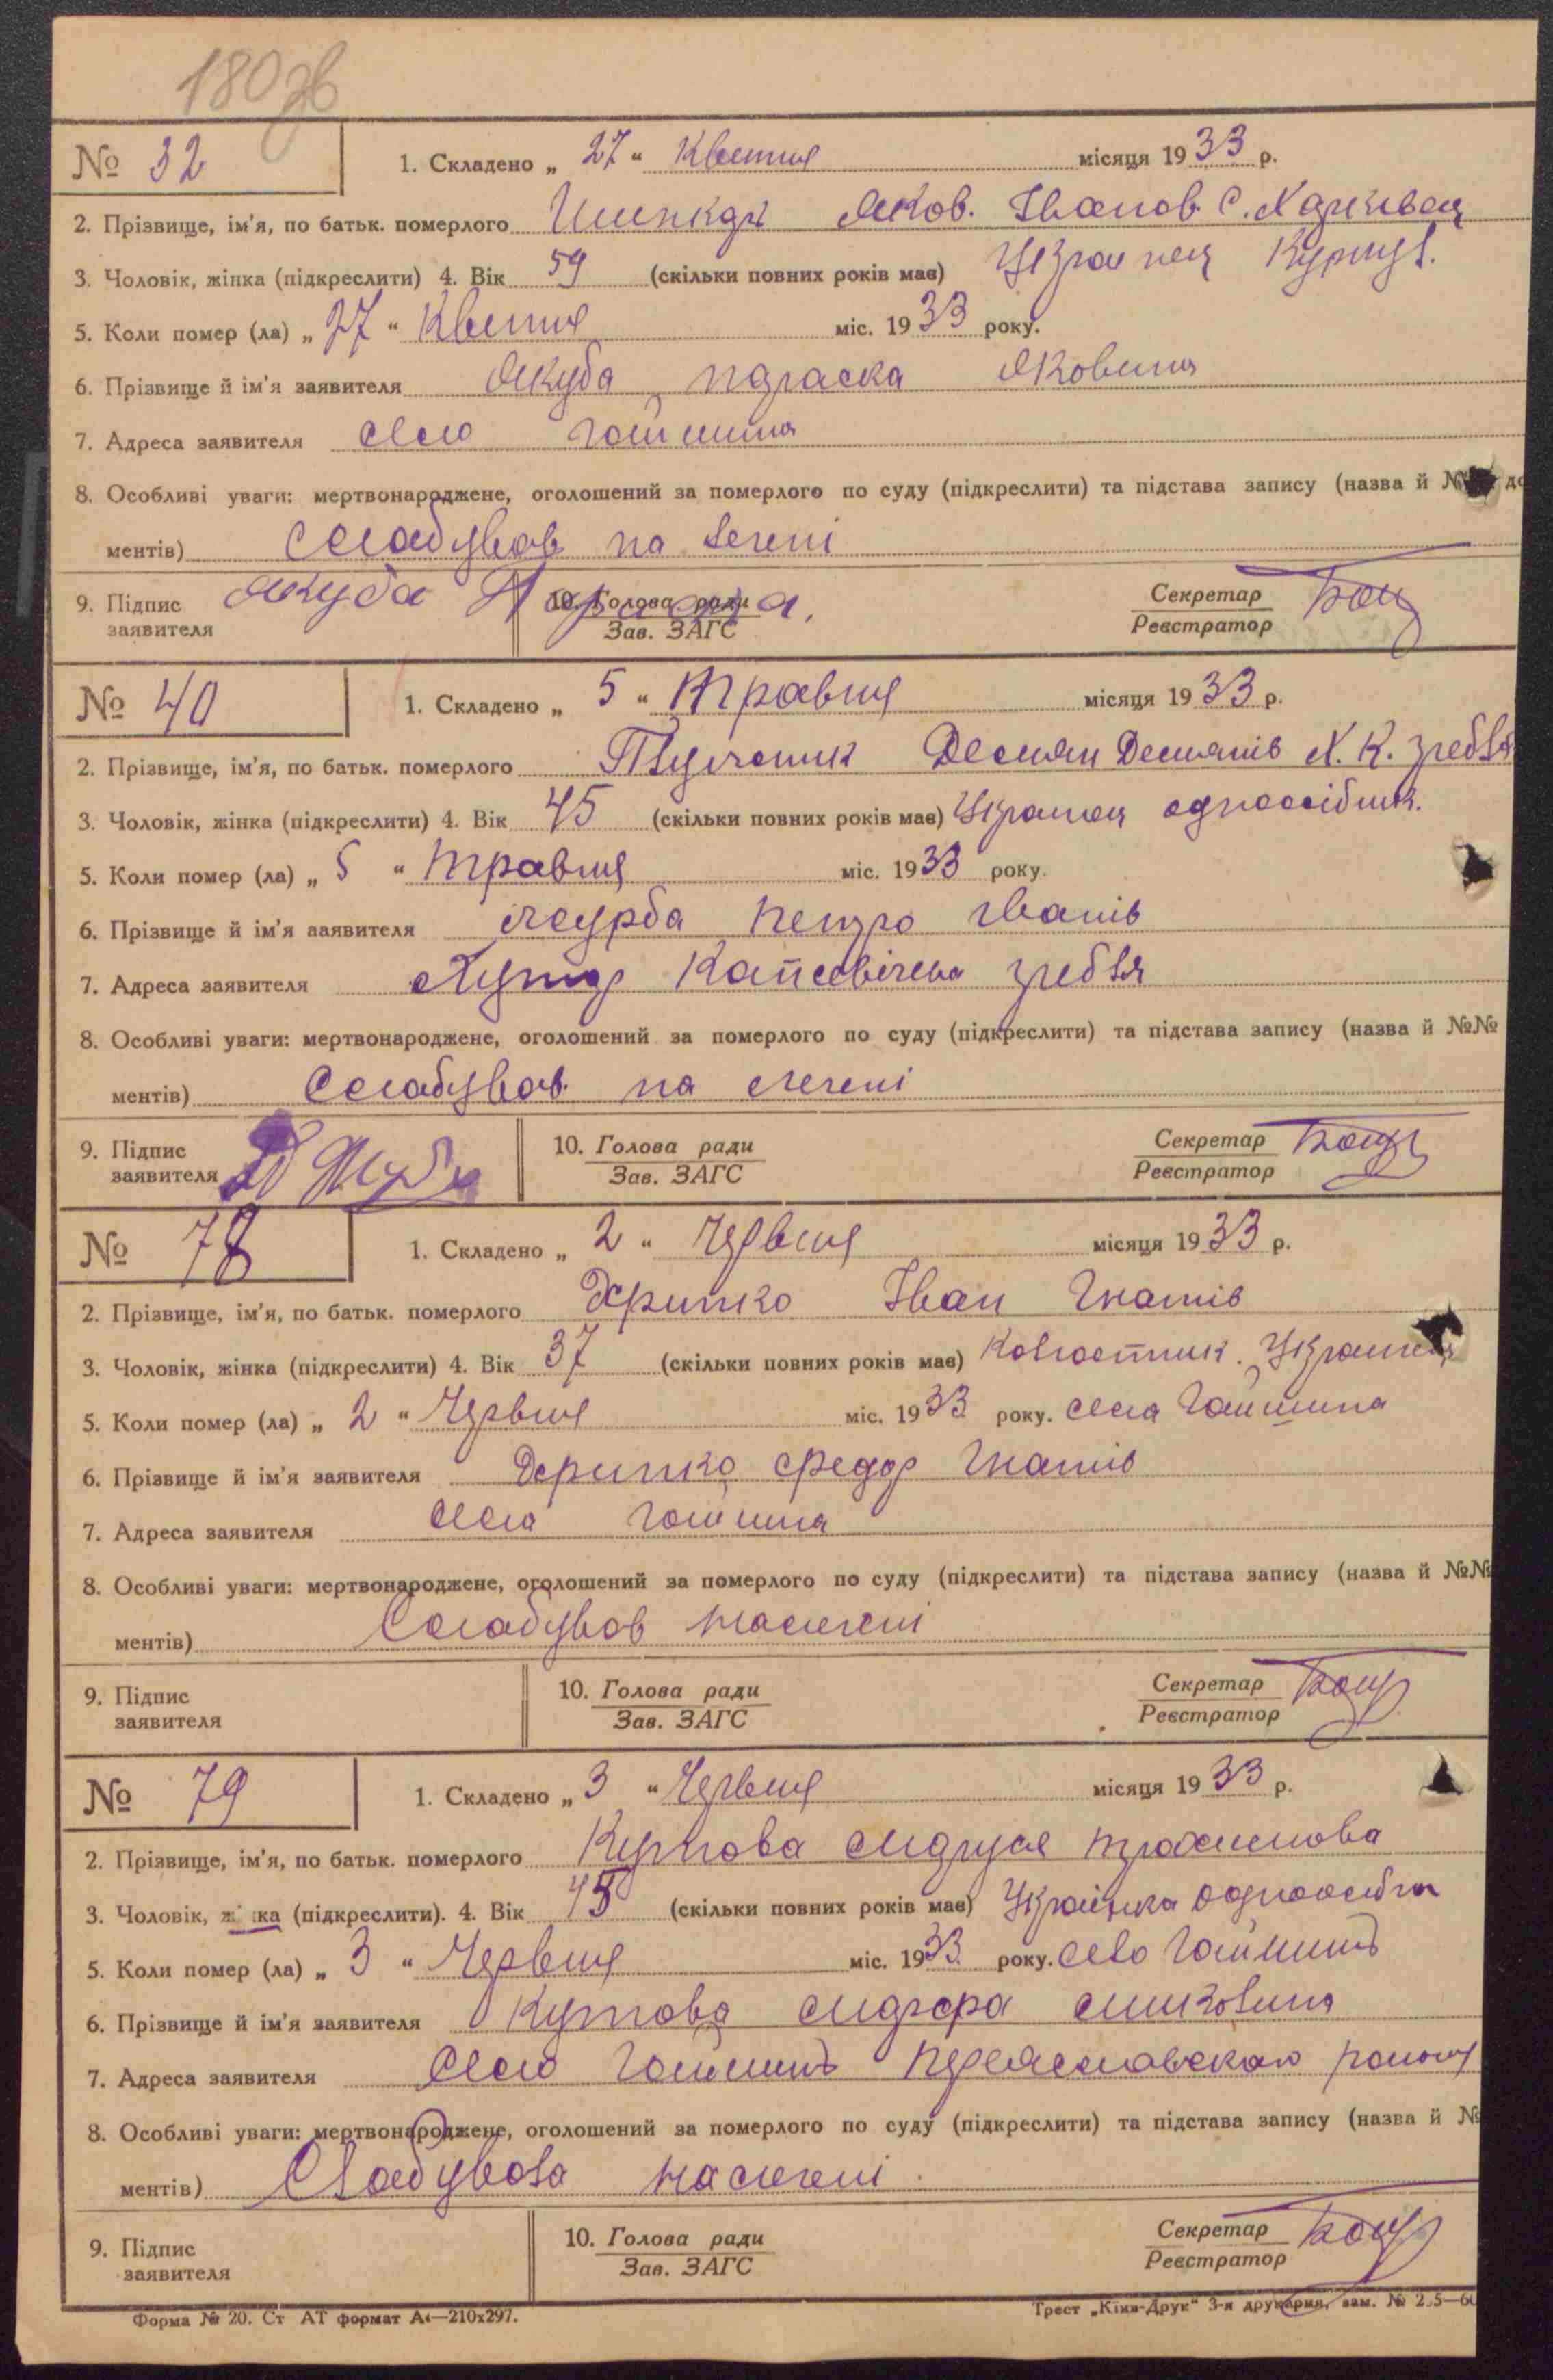 180зв
№ 32 1. Складено „ 27 “ Квітня місяця 1933 р.
2. Прізвище, ім'я, по батьк. померлого Яков. Іванов. С. Харківец
3. Чоловік, жінка (підкреслити) 4. Вік 59 (скільки повних років має) Украінец
5. Коли помер (ла) „ 27 “ Квітня міс. 1933 року.
6. Прізвище й ім'я заявителя Якуба Параска Яковина
7. Адреса заявителя село Гайшина
8. Особливі уваги: мертвонароджене, оголошений за померлого по суду (підкреслити) та підстава запису (назва й
ментів) Слабував на легені
9. Підпис заявителя Якуба Параска. 10. Голова ради Секретар
Зав. ЗАГС Реєстратор
№ 40 1. Складено „ 5 “ Травня місяця 1933 р.
2. Прізвище, ім'я, по батьк. померлого Демян Демянів Х. К. Гребля
3. Чоловік, жінка (підкреслити) 4. Вік 45 (скільки повних років має) Украінец одноосібник.
5. Коли помер (ла) „ 5 “ Травня міс. 1933 року.
6. Прізвище й ім'я заявителя Петро Іванів
7. Адреса заявителя Хутір гребля
8. Особливі уваги: мертвонароджене, оголошений за померлого по суду (підкреслити) та підстава запису (назва й №№
ментів) Слабував на легені
9. Підпис заявителя 10. Голова ради Секретар
Зав. ЗАГС Реєстратор
№ 78 1. Складено „ 2 “ Червня місяця 1933 р.
2. Прізвище, ім'я, по батьк. померлого Дерипко Іван Гнатів
3. Чоловік, жінка (підкреслити) 4. Вік 37 (скільки повних років має) Колгоспник. Украінец
5. Коли помер (ла) „ 2 “ Червня міс. 1933 року. села Гайшина
6. Прізвище й ім'я заявителя Дерипко Федор Гнатів
7. Адреса заявителя села Гайшина
8. Особливі уваги: мертвонароджене, оголошений за померлого по суду (підкреслити) та підстава запису (назва й №№
ментів) Слабував на легені
9. Підпис заявителя 10. Голова ради Секретар
Зав. ЗАГС Реєстратор
№ 79 1. Складено „ 3 “ Червня місяця 1933 р.
2. Прізвище, ім'я, по батьк. померлого
3. Чоловік, жінка (підкреслити). 4. Вік 45 (скільки повних років має) Украінка
5. Коли помер (ла) „ 3 “ Червня міс. 1933 року. село Гайшинъ
6. Прізвище й ім'я заявителя
7. Адреса заявителя село Гайшинъ Переяславскаго району
8. Особливі уваги: мертвонароджене, оголошений за померлого по суду (підкреслити) та підстава запису (назва й №
ментів) Слабувала на легені
9. Підпис заявителя 10. Голова ради Секретар
Зав. ЗАГС Реєстратор
Форма № 20. Ст АТ формат А4—210х297. Трест „Київ-Друк“ 3-я друкарня, зам. №